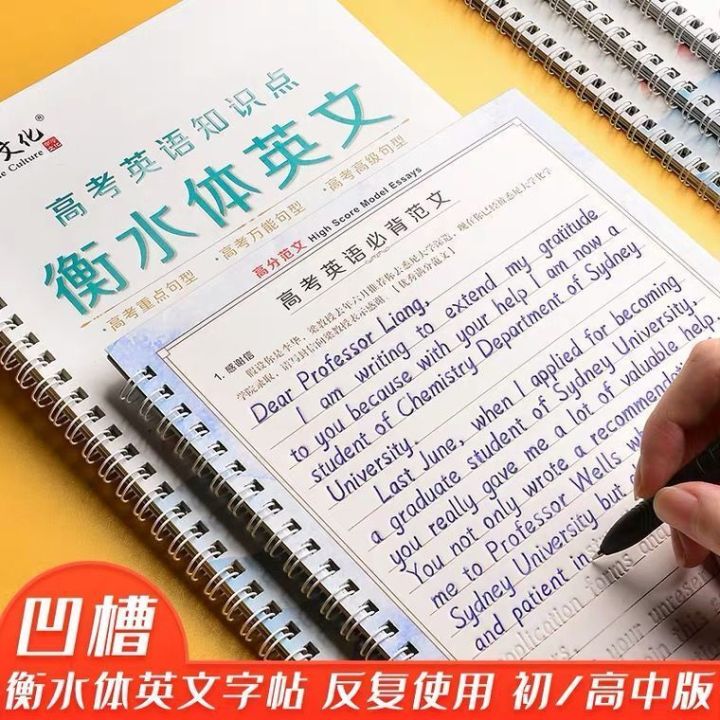 文化
高考英语知识点
衡水体英文
·高考重点句型 ·高考万能句型 ·高考高级句型
高分范文 High Score Model Essays
高考英语必背范文
1. 感谢信
假设你是李华，梁教授去年六月推荐你去悉尼大学深造，现在你已经被悉尼大学化学
学院录取，请写封信向梁教授表示感谢。【优秀满分范文】
Dear Professor Liang,
I am writing to extend my gratitude
to you because with your help I am now a
student of Chemistry Department of Sydney
University.
Last June, when I applied for becoming
a graduate student of Sydney University,
you really gave me a lot of valuable help.
You not only wrote a recommendation
me to Professor Wells
Sydney University but
and patient in
application forms and
your
凹槽
衡水体英文字帖 反复使用 初/高中版